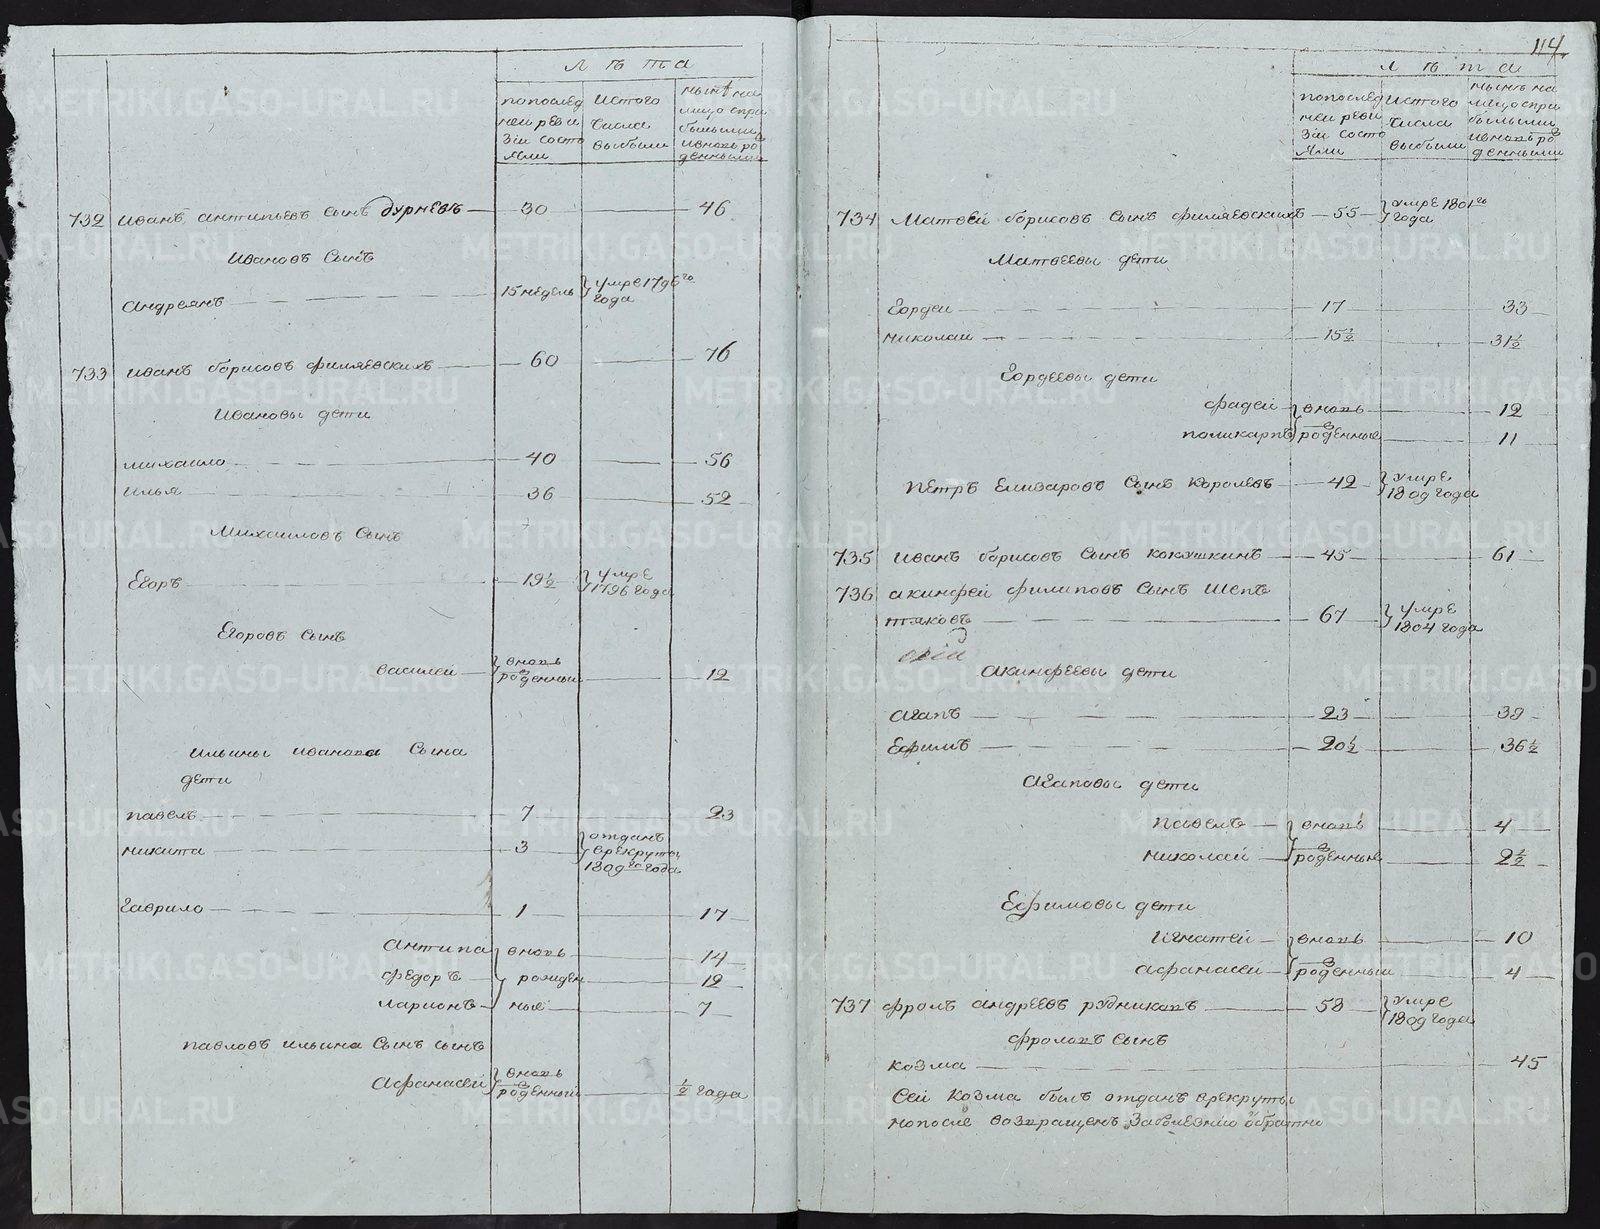 лѣта
попослед
ней реви
зіи состо
яли
истого
числа
выбыли
нынѣ на
лицо спри
былыми
ивновь ро
денными
732 иванъ антипьевъ сынъ дурневъ 30 46
ивановъ сынъ
андреянъ 15 недель умре 1796го
года
733 иванъ борисовъ филяевскихъ 60 76
ивановы дети
михаило 40 56
илья 36 52
михаиловъ сынъ
егоръ 19½ умре
1796 года
егоровъ сынъ
василей вновь
роденный 12
ильины иванова сына
дети
павелъ 7 23
никита 3 отданъ
врекруты
1809го года
гаврило 1 17
антипа вновь 14
федоръ рожден 12
ларионъ ные 7
павловъ ильина сынъ сынъ
афанасей вновь
роденный ½ года
114
лѣта
попослед
ней реви
зіи состо
яли
истого
числа
выбыли
нынѣ на
лицо спри
былыми
ивновь ро
денными
734 матвей борисовъ сынъ филяевскихъ 55 умре 1801го
года
матвеевы дети
гордеи 17 33
николай 15½ 31½
гордеевы дети
фадей вновь 12
поликарпъ роденные 11
петръ елизаровъ сынъ королевъ 42 умре
1809 года
735 иванъ борисовъ сынъ кокушкинъ 45 61
736 акинфей филиповъ сынъ шеле
тяковъ 67 умре
1804 года
акинфеевы дети
агапъ 23 39
ефимъ 20½ 36½
агаповы дети
павелъ вновь 4
николай роденные 2½
ефимовы дети
игнатей вновь 10
афанасей роденныи 4
737 фролъ андреевъ рудниковъ 58 умре
1809 года
фроловъ сынъ
козма 45
сей козма былъ отданъ врекруты
нопосле возвращенъ заболезнию обратно